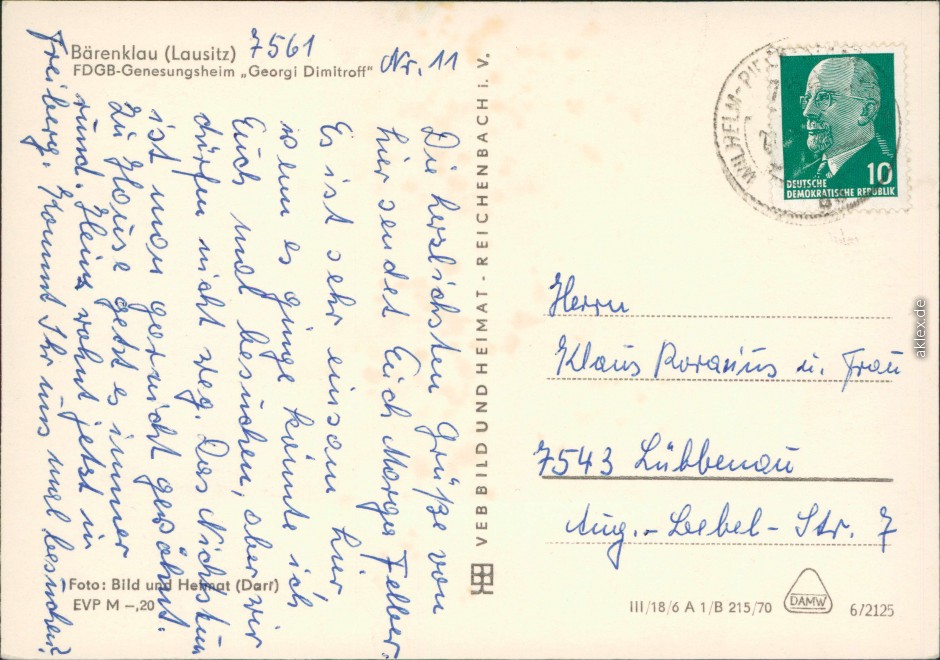 Bärenklau (Lausitz) 7561
FDGB-Genesungsheim „Georgi Dimitroff“ Nr. 11
Die herzlichsten Grüße von
hier sendet Euch Felber.
Es ist sehr einsam hier,
wenn es ginge könnte ich
Euch mal besuchen, aber wir
dürfen nicht weg. Das Nichtstun
ist man garnicht gewöhnt.
Zu Hause geht es immer
rund. Heinz wohnt jetzt in
Freiberg. Kommt Ihr uns mal besuchen?
Foto: Bild und Heimat (Darr)
EVP M –,20
VEB BILD UND HEIMAT - REICHENBACH i. V.
WILHELM-
10
DEUTSCHE
DEMOKRATISCHE REPUBLIK
Herrn
Klaus u. Frau
7543 Lübbenau
Aug.-Bebel-Str. 7
III/18/6 A 1/B 215/70
DAMW
6/2125
aklex.de